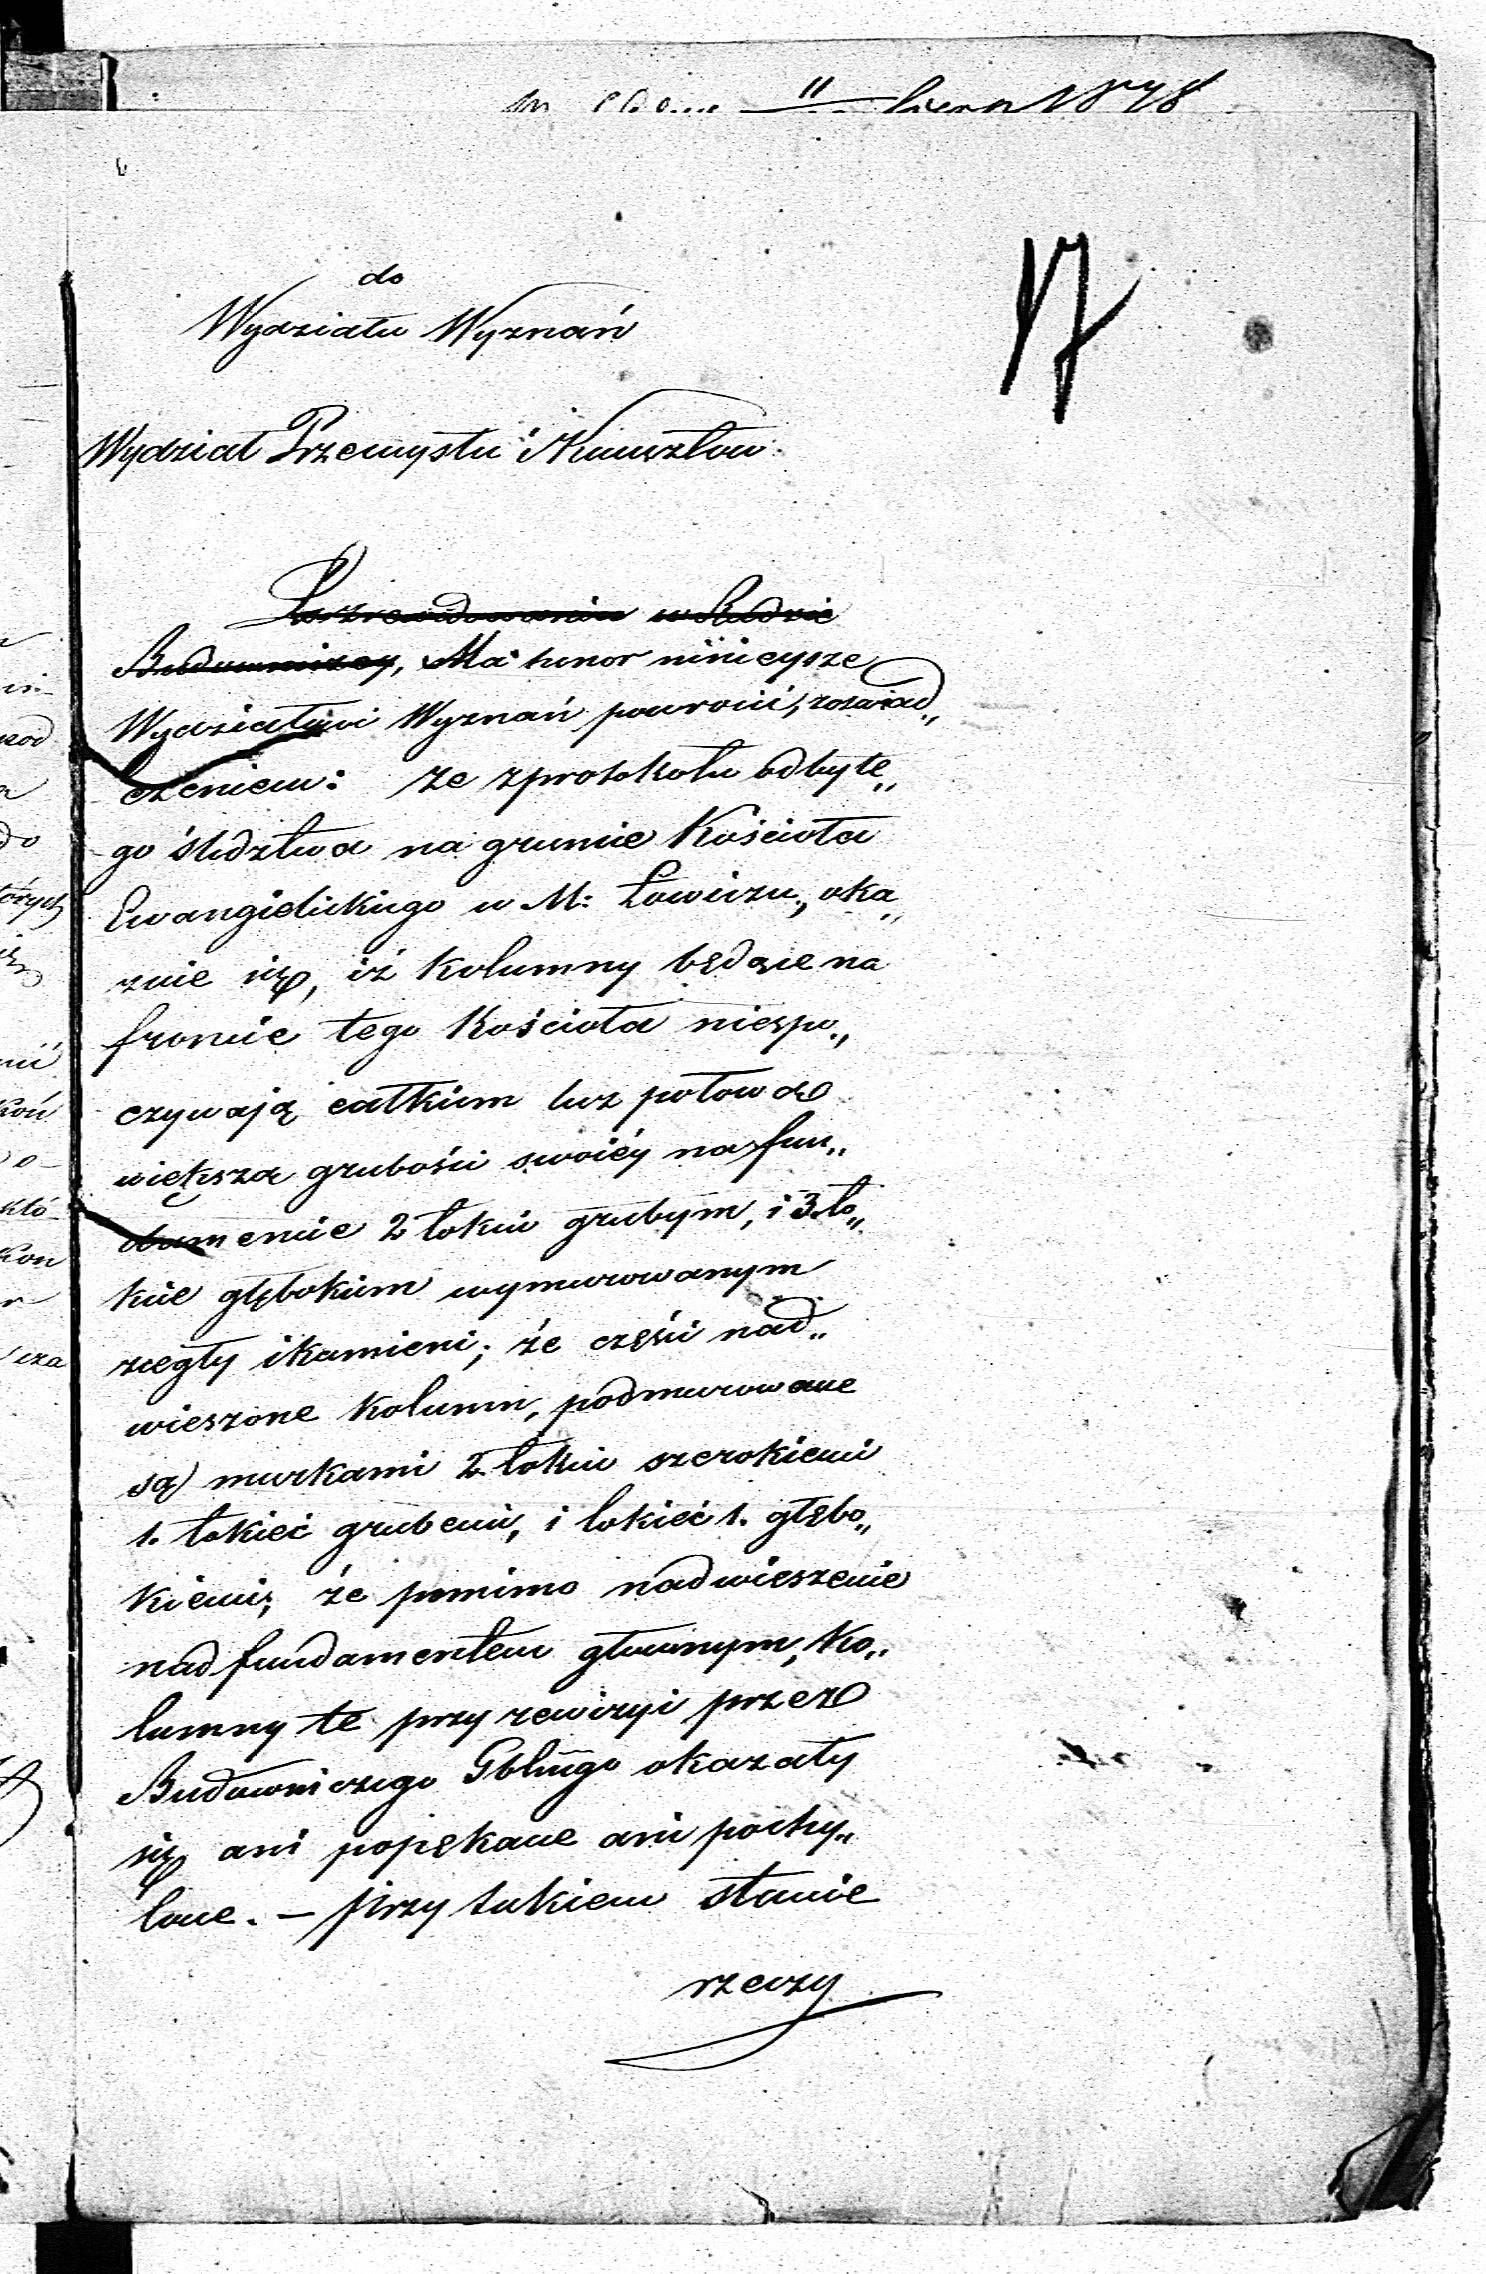 11 1878
17
do
Wydziału Wyznań
Wydział Przemysłu i Kunsztów.
w Radzie
Budowniczey, Ma honor ninieysze
Wydziałowi Wyznań powrócić, zoświad„
czeniem: że zprotokołu odbyte„
go śledztwa na gruncie Kościoła
Ewangielickiego w M: Łowiczu, oka„
zuie się, iż kolumny będące na
froncie tego Kościoła niespo„
czywają całkiem lecz połową
większą grubości swoiéy na fun„
damencie 2 łokcie grubym, i 3 ło„
kcie głębokim wymurowanym
zcegły i kamieni; że części nad„
wieszone kolumn, podmurowane
są murkami 2 łokcie szerokiemi
1. łokieć grubemi, i łokieć 1. głębo„
kiemi; że pomimo nadwieszenie
nad fundamentem głownym, ko„
lumny te przy rewizyi przez
Budowniczego Gblnego okazały
się ani popękane ani pochy„
lone. – przy takiem stanie
rzeczy